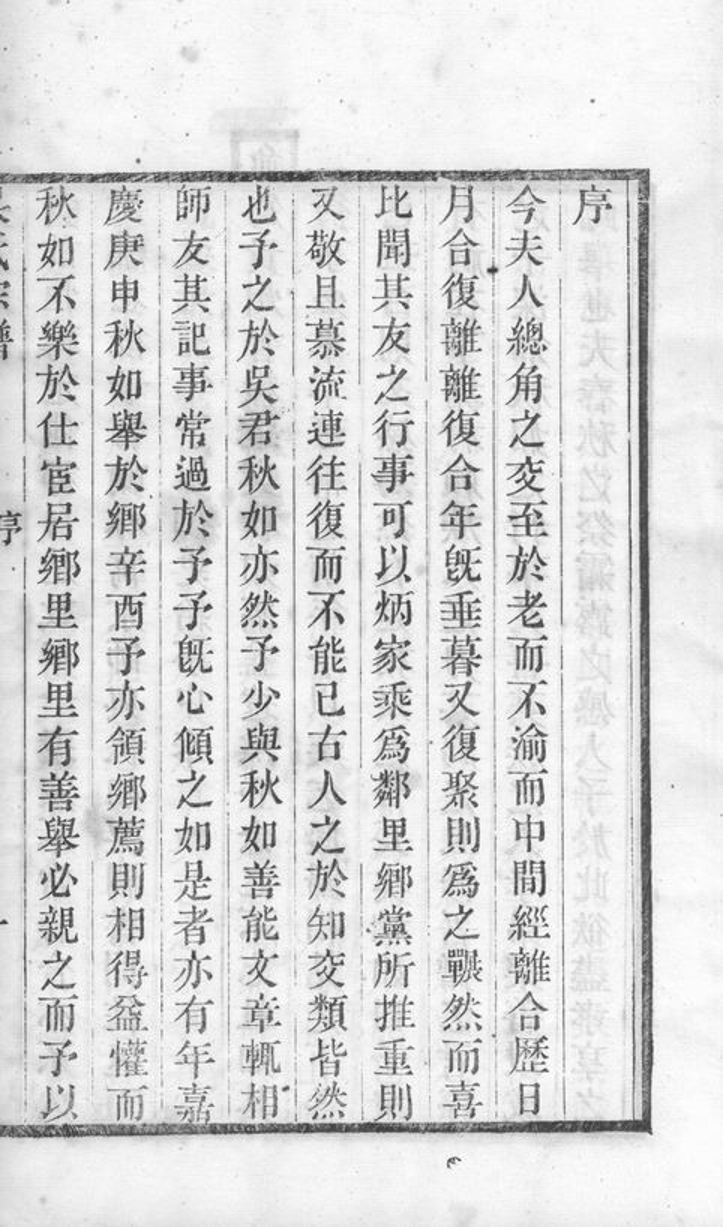 序
今夫人總角之交至於老而不渝而中間經離合歷日
月合復離離復合年旣垂暮又復聚則爲之囅然而喜
比聞其友之行事可以炳家乘爲鄰里鄉黨所推重則
又敬且慕流連往復而不能已古人之於知交類皆然
也予之於吳君秋如亦然予少與秋如善能文章輒相
師友其記事常過於予予旣心傾之如是者亦有年嘉
慶庚申秋如舉於鄉辛酉予亦領鄉薦則相得益懽而
秋如不樂於仕宦居鄉里鄉里有善舉必親之而予以
氏宗譜 序 一